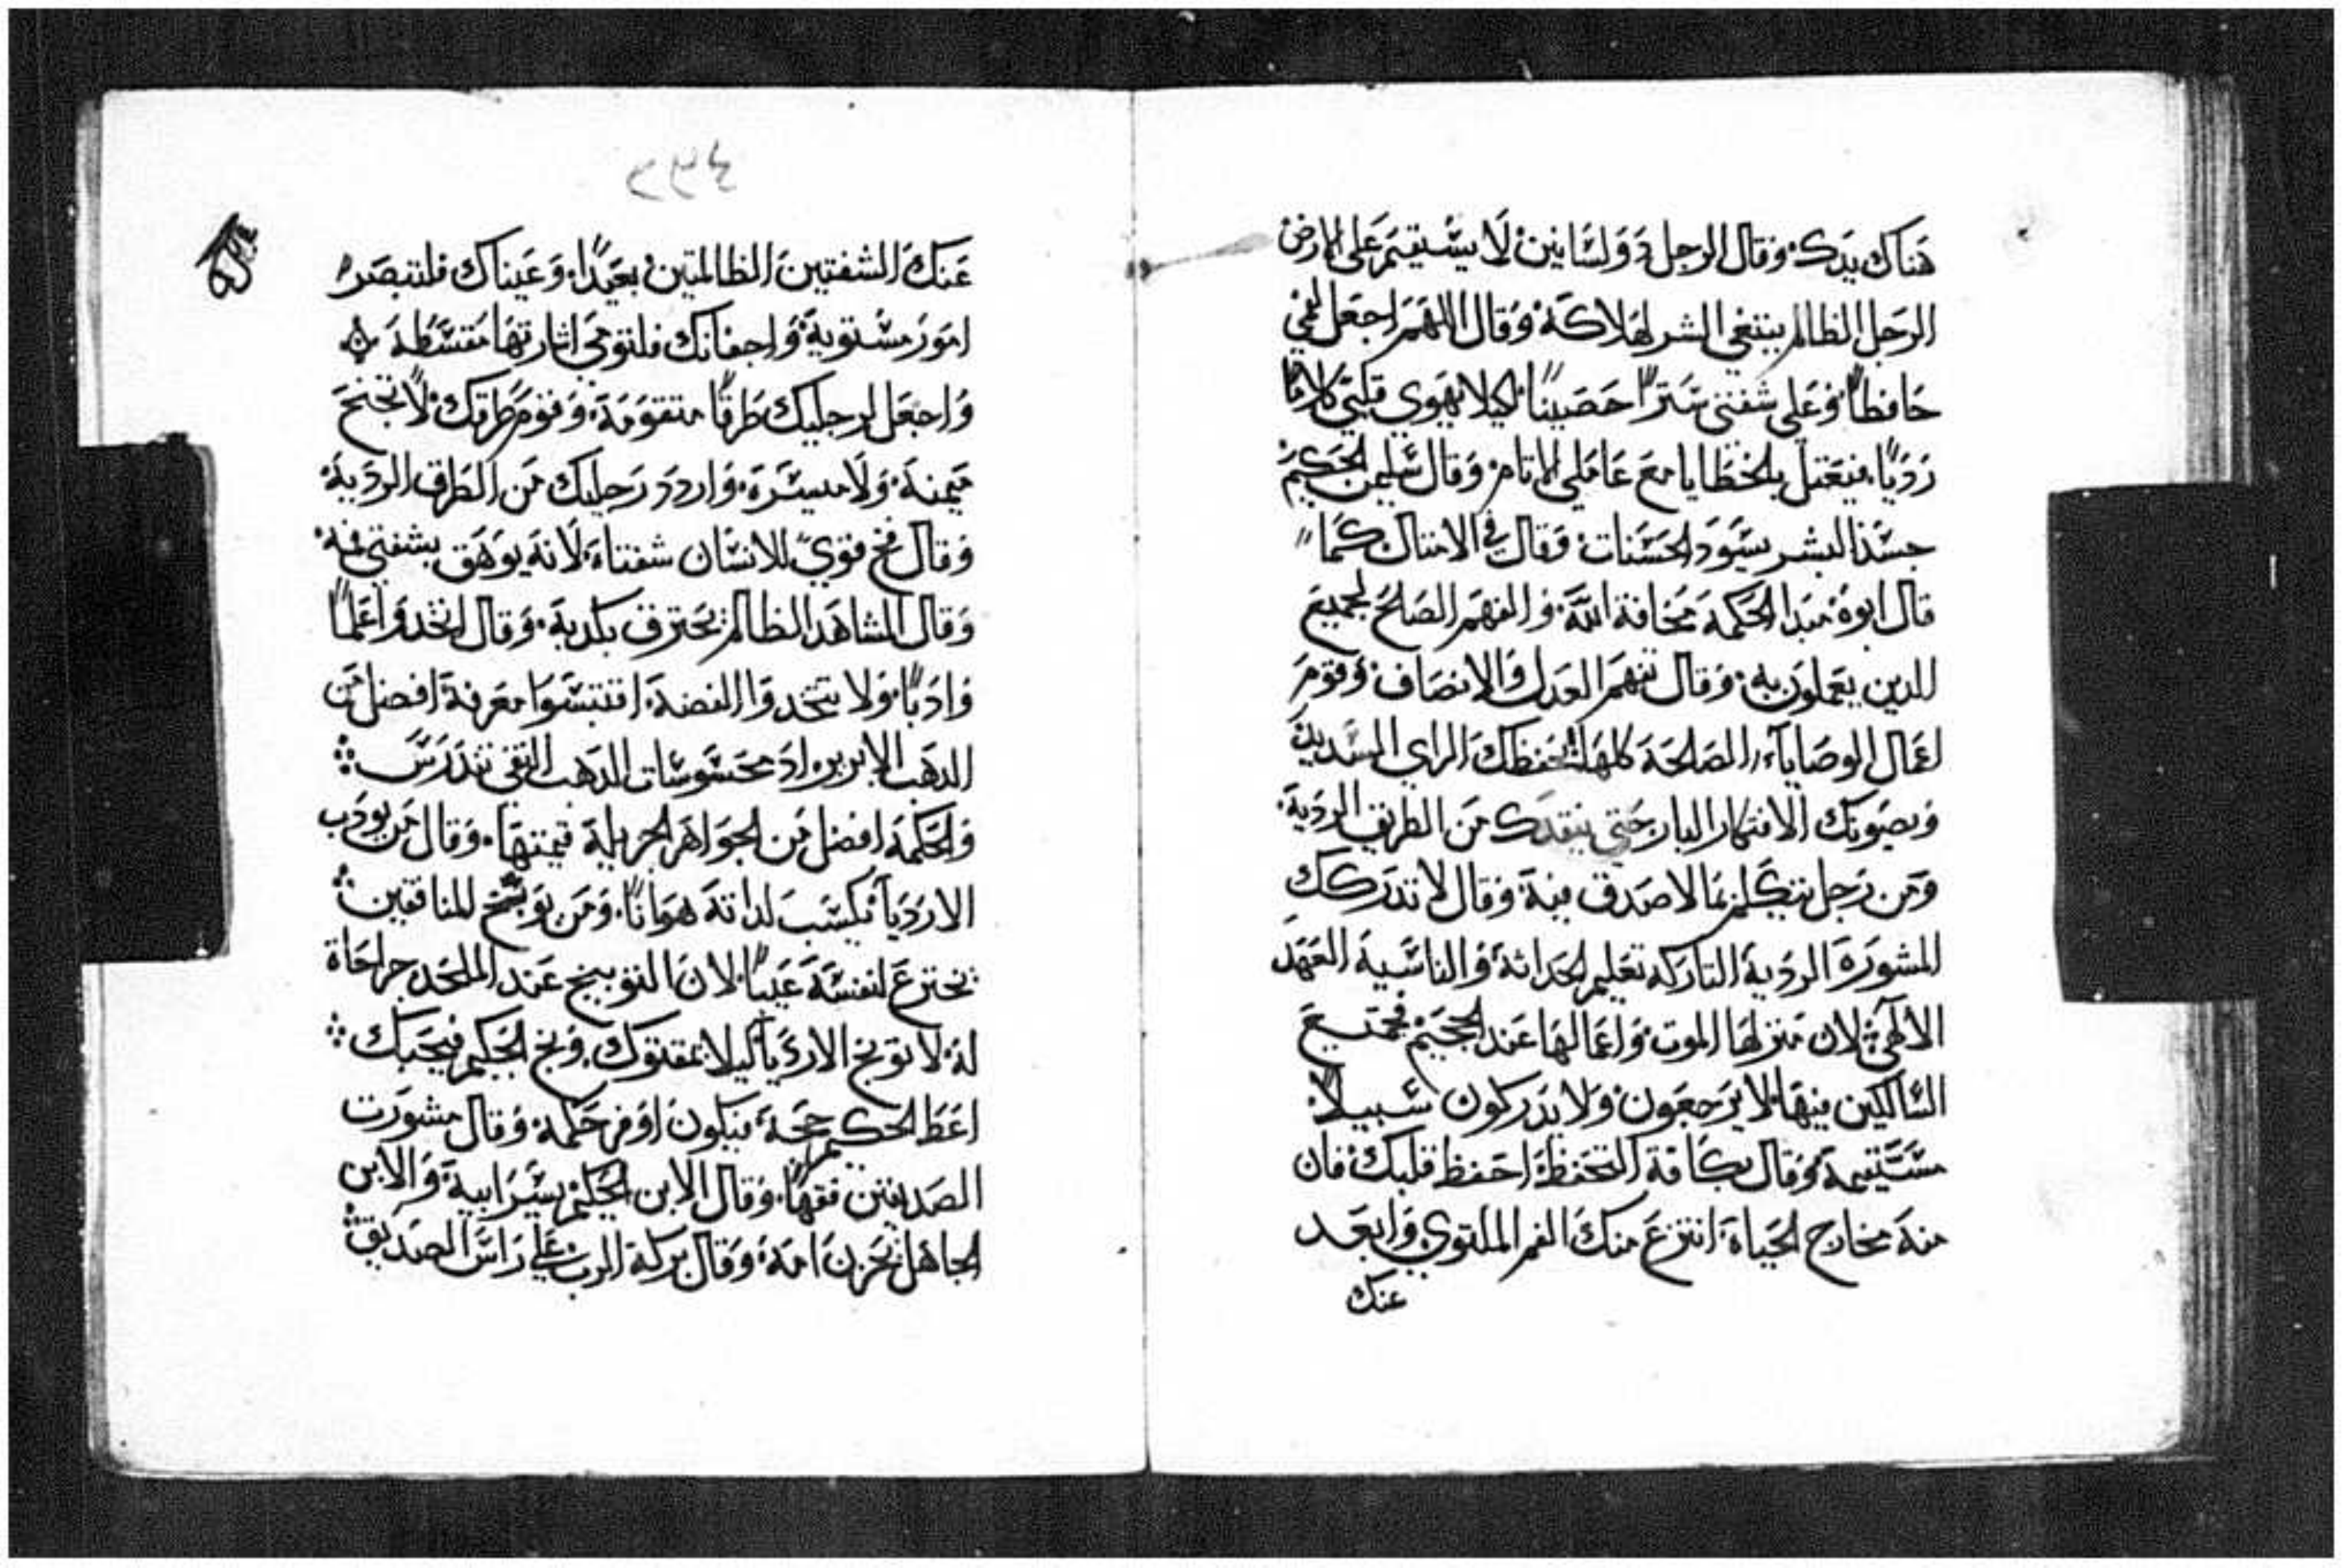 هناك يدك وقال الرجل ذو لسانين لا يستقيم على الارض
الرجل الظالم يبتغي الشر لهلاكه وقال اللهم اجعل لفمي
حافظاً وعلى شفتي ستراً حصيناً كيلا يهوي قلبي كلاماً
ردياً فيعتل بالخطايا مع عاملي الاثام وقال سليمن الحكيم
جسد البشر يسود الحسنات وقال في الامتال كما
قال ابوه مبدا الحكمة مخافة الله والفهم الصالح لجميع
للدين يعملون به وقال تفهم العدل والانصاف وقوم
اعمال الوصاياء الصالحة كلها لتحفظك الراي السديد
ويصونك الافتكار البار حتي ينقدك من الطريق الردية
ومن رجل يتكلم بما لا صدق فيه وقال لا تدركك
المشورة الردية التاركه تعليم الحداثة والناسية العهد
الالهي لان منزلها الموت واعمالها عند الجحيم فجميع
السالكين فيها لا يرجعون ولا يدركون سبيلاً
مستقيمة وقال بكافة التحفظ احفظ قلبك فان
منه مخارج الحياة انتزع منك الفم الملتوي وابعد
عنك
٢٢٤
عنك الشفتين الظالمتين بعيداً وعيناك فلتبصر
امور مستوية واجفانك فلتومي اشارتها مقسطة
واجعل لرجليك طرقاً متقومة وقوم طرقك لا تجنح
يمنة ولا ميسرة واردد رجليك من الطرق الردية
وقال فخ قوي للانسان شفتاه لانه يوهق بشفتي فمه
وقال المشاهد الظالم يحترق بكدبه وقال اتخدوا علماً
وادباً ولا تتخدوا الفضة اقتبسوا معرفة افضل من
الدهب الابريز اد محسوسات الدهب النقي تندرس
والحكمة افضل من الجواهر الجزيلة قيمتها وقال من يودب
الاردياء يكسب لداته هواناً ومن يوبخ للمنافقين
يخترع لنفسه عيباً لان التوبيخ عند الملحد جراحاة
له لا توبخ الاردياء كيلا يمقتوك وبخ الحكيم فيحبك
اعط الحكيم حجة فيكون اوفر حكمة وقال مشورت
الصديقين فقهاً وقال الابن الحكيم يسر ابيه والابن
الجاهل يحزن امه وقال بركة الرب علي راس الصديق